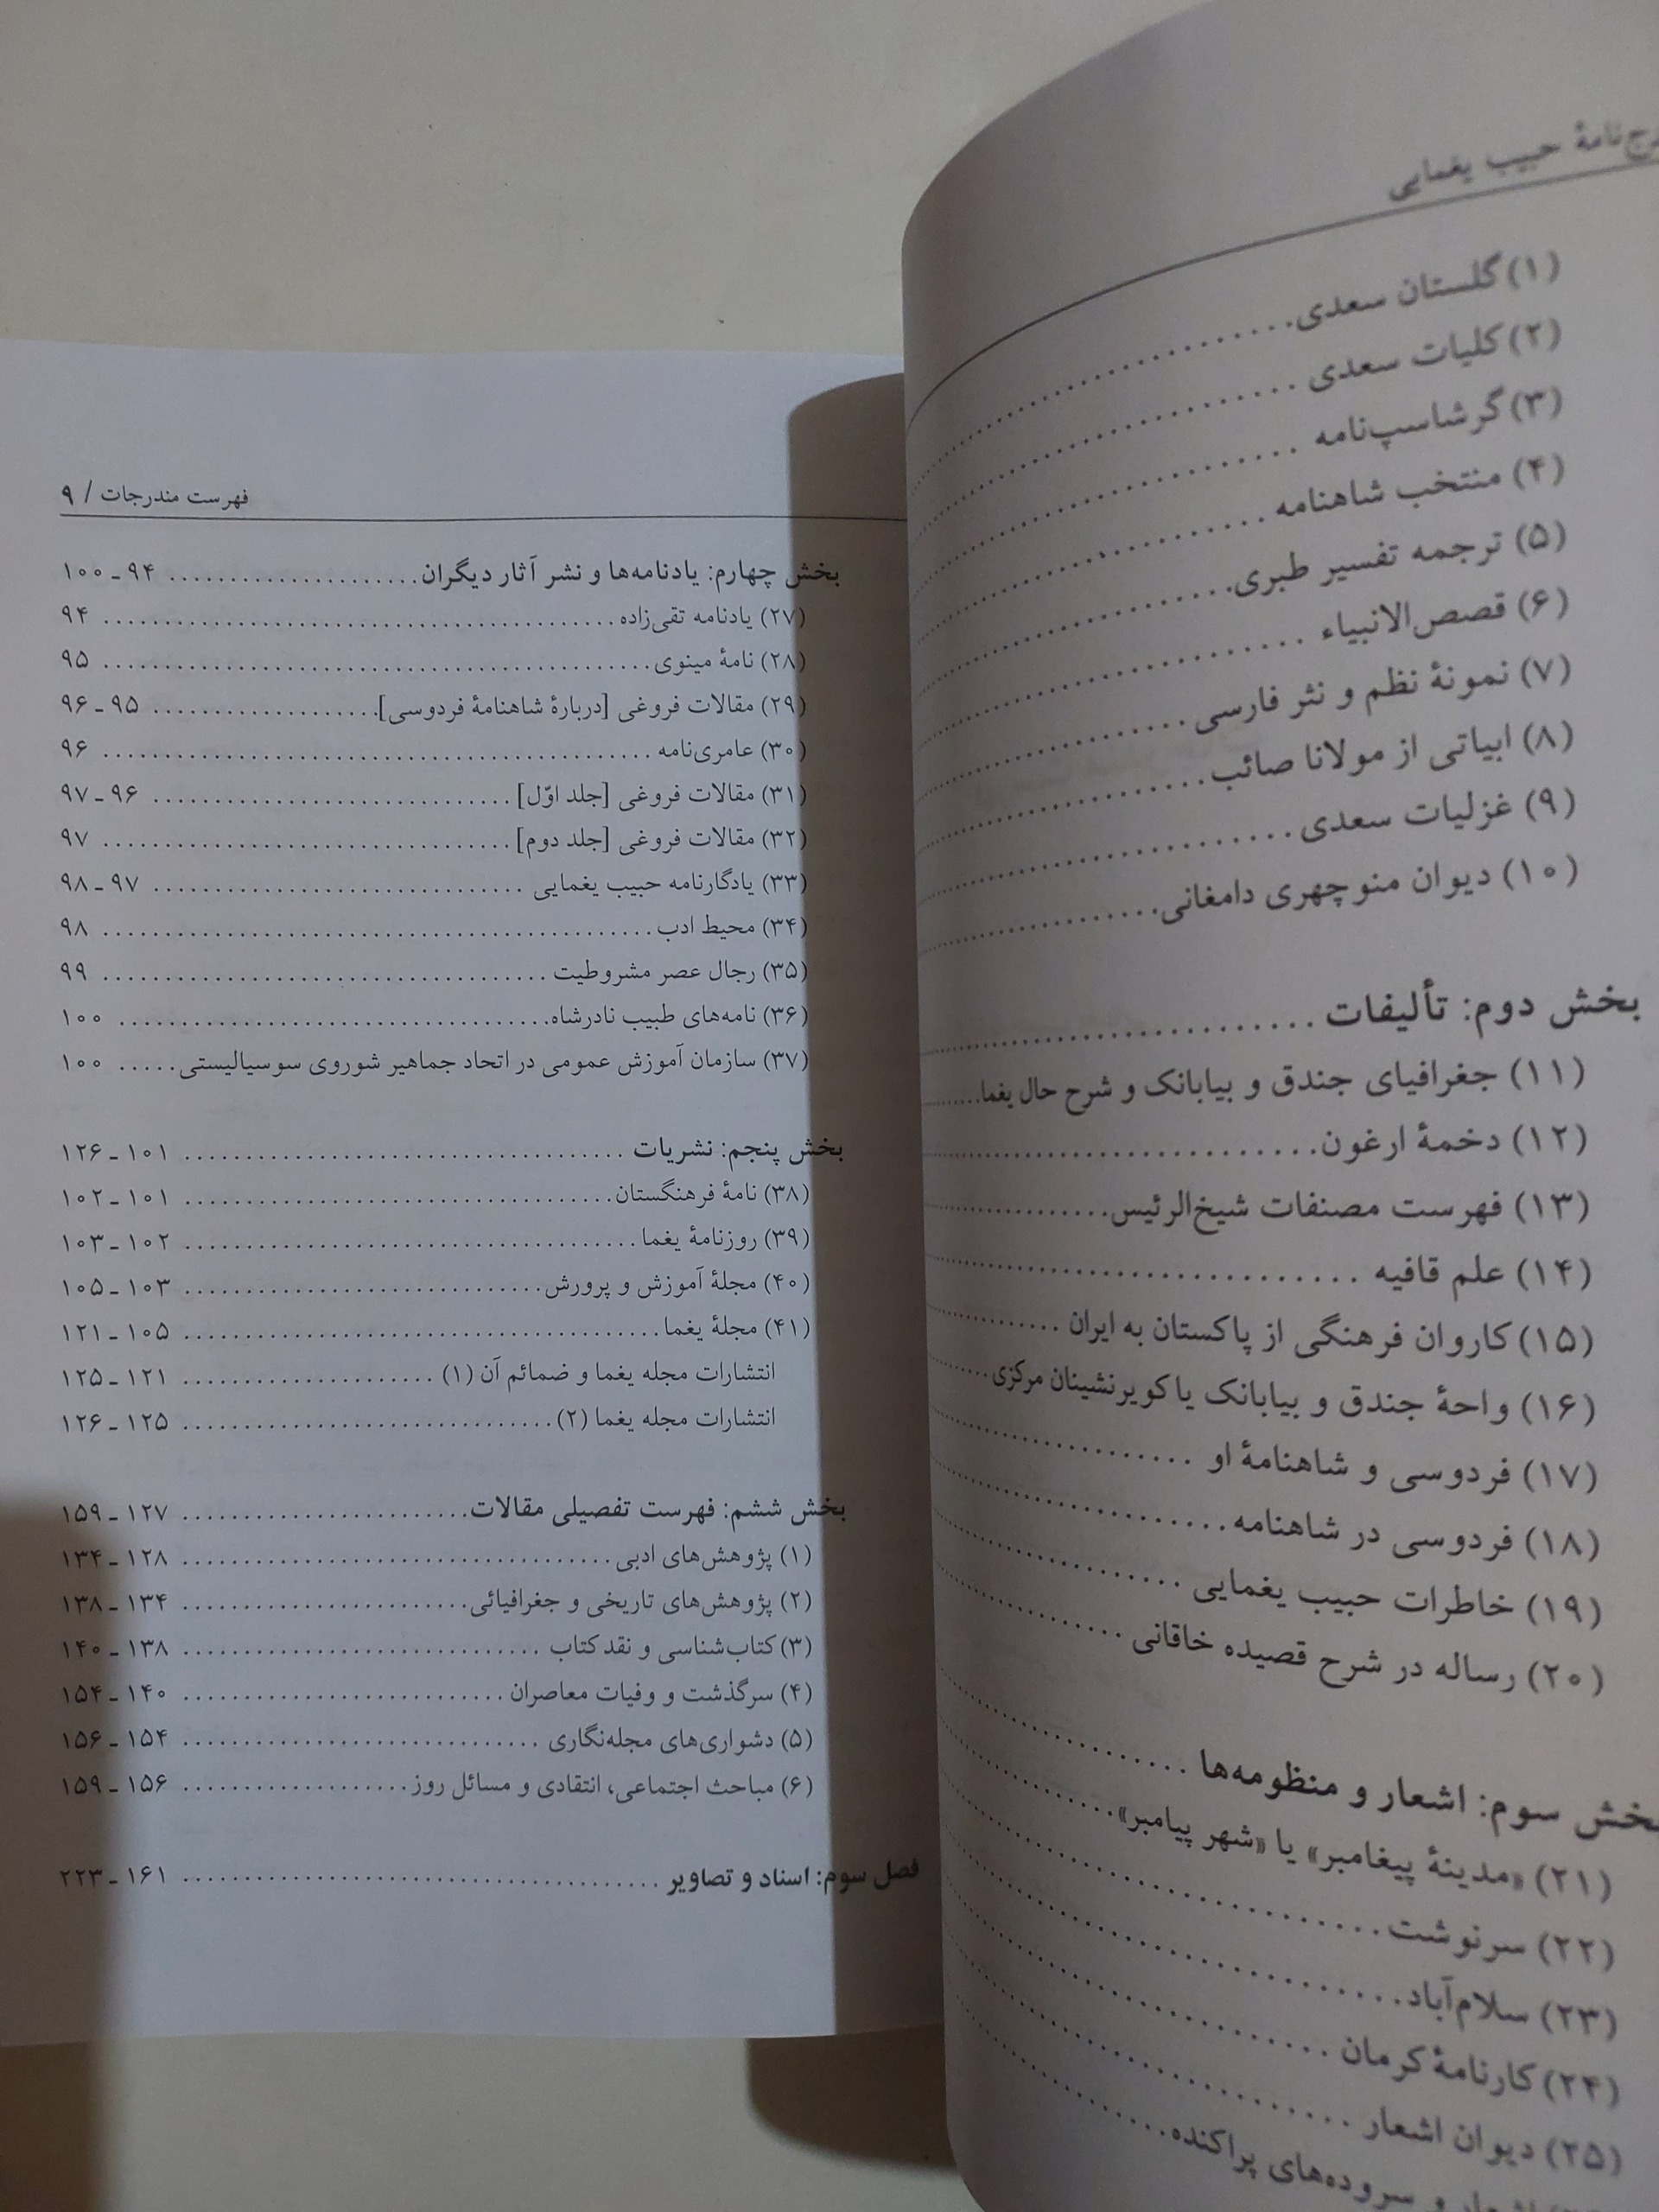 حبیب یغمایی
(۱) گلستان سعدی
(۲) کلیات سعدی
(۳) گرشاسپ‌نامه
(۴) منتخب شاهنامه
(۵) ترجمه تفسیر طبری
(۶) قصص‌الانبیاء
(۷) نمونهٔ نظم و نثر فارسی
(۸) ابیاتی از مولانا صائب
(۹) غزلیات سعدی
(۱۰) دیوان منوچهری دامغانی
بخش دوم: تألیفات
(۱۱) جغرافیای جندق و بیابانک و شرح حال یغما
(۱۲) دخمهٔ ارغون
(۱۳) فهرست مصنفات شیخ‌الرئیس
(۱۴) علم قافیه
(۱۵) کاروان فرهنگی از پاکستان به ایران
(۱۶) واحهٔ جندق و بیابانک یا کویرنشینان مرکزی
(۱۷) فردوسی و شاهنامهٔ او
(۱۸) فردوسی در شاهنامه
(۱۹) خاطرات حبیب یغمایی
(۲۰) رساله در شرح قصیده خاقانی
بخش سوم: اشعار و منظومه‌ها
(۲۱) «مدینهٔ پیغامبر» یا «شهر پیامبر»
(۲۲) سرنوشت
(۲۳) سلام‌آباد
(۲۴) کارنامهٔ کرمان
(۲۵) دیوان اشعار
اشعار و سروده‌های پراکنده
فهرست مندرجات / ۹
بخش چهارم: یادنامه‌ها و نشر آثار دیگران ۹۴ـ۱۰۰
(۲۷) یادنامه تقی‌زاده ۹۴
(۲۸) نامهٔ مینوی ۹۵
(۲۹) مقالات فروغی [دربارهٔ شاهنامهٔ فردوسی] ۹۵ـ۹۶
(۳۰) عامری‌نامه ۹۶
(۳۱) مقالات فروغی [جلد اوّل] ۹۶ـ۹۷
(۳۲) مقالات فروغی [جلد دوم] ۹۷
(۳۳) یادگارنامه حبیب یغمایی ۹۷ـ۹۸
(۳۴) محیط ادب ۹۸
(۳۵) رجال عصر مشروطیت ۹۹
(۳۶) نامه‌های طبیب نادرشاه ۱۰۰
(۳۷) سازمان آموزش عمومی در اتحاد جماهیر شوروی سوسیالیستی ۱۰۰
بخش پنجم: نشریات ۱۰۱ـ۱۲۶
(۳۸) نامهٔ فرهنگستان ۱۰۱ـ۱۰۲
(۳۹) روزنامهٔ یغما ۱۰۲ـ۱۰۳
(۴۰) مجلهٔ آموزش و پرورش ۱۰۳ـ۱۰۵
(۴۱) مجلهٔ یغما ۱۰۵ـ۱۲۱
انتشارات مجله یغما و ضمائم آن (۱) ۱۲۱ـ۱۲۵
انتشارات مجله یغما (۲) ۱۲۵ـ۱۲۶
بخش ششم: فهرست تفصیلی مقالات ۱۲۷ـ۱۵۹
(۱) پژوهش‌های ادبی ۱۲۸ـ۱۳۴
(۲) پژوهش‌های تاریخی و جغرافیائی ۱۳۴ـ۱۳۸
(۳) کتاب‌شناسی و نقد کتاب ۱۳۸ـ۱۴۰
(۴) سرگذشت و وفیات معاصران ۱۴۰ـ۱۵۴
(۵) دشواری‌های مجله‌نگاری ۱۵۴ـ۱۵۶
(۶) مباحث اجتماعی، انتقادی و مسائل روز ۱۵۶ـ۱۵۹
فصل سوم: اسناد و تصاویر ۱۶۱ـ۲۲۳